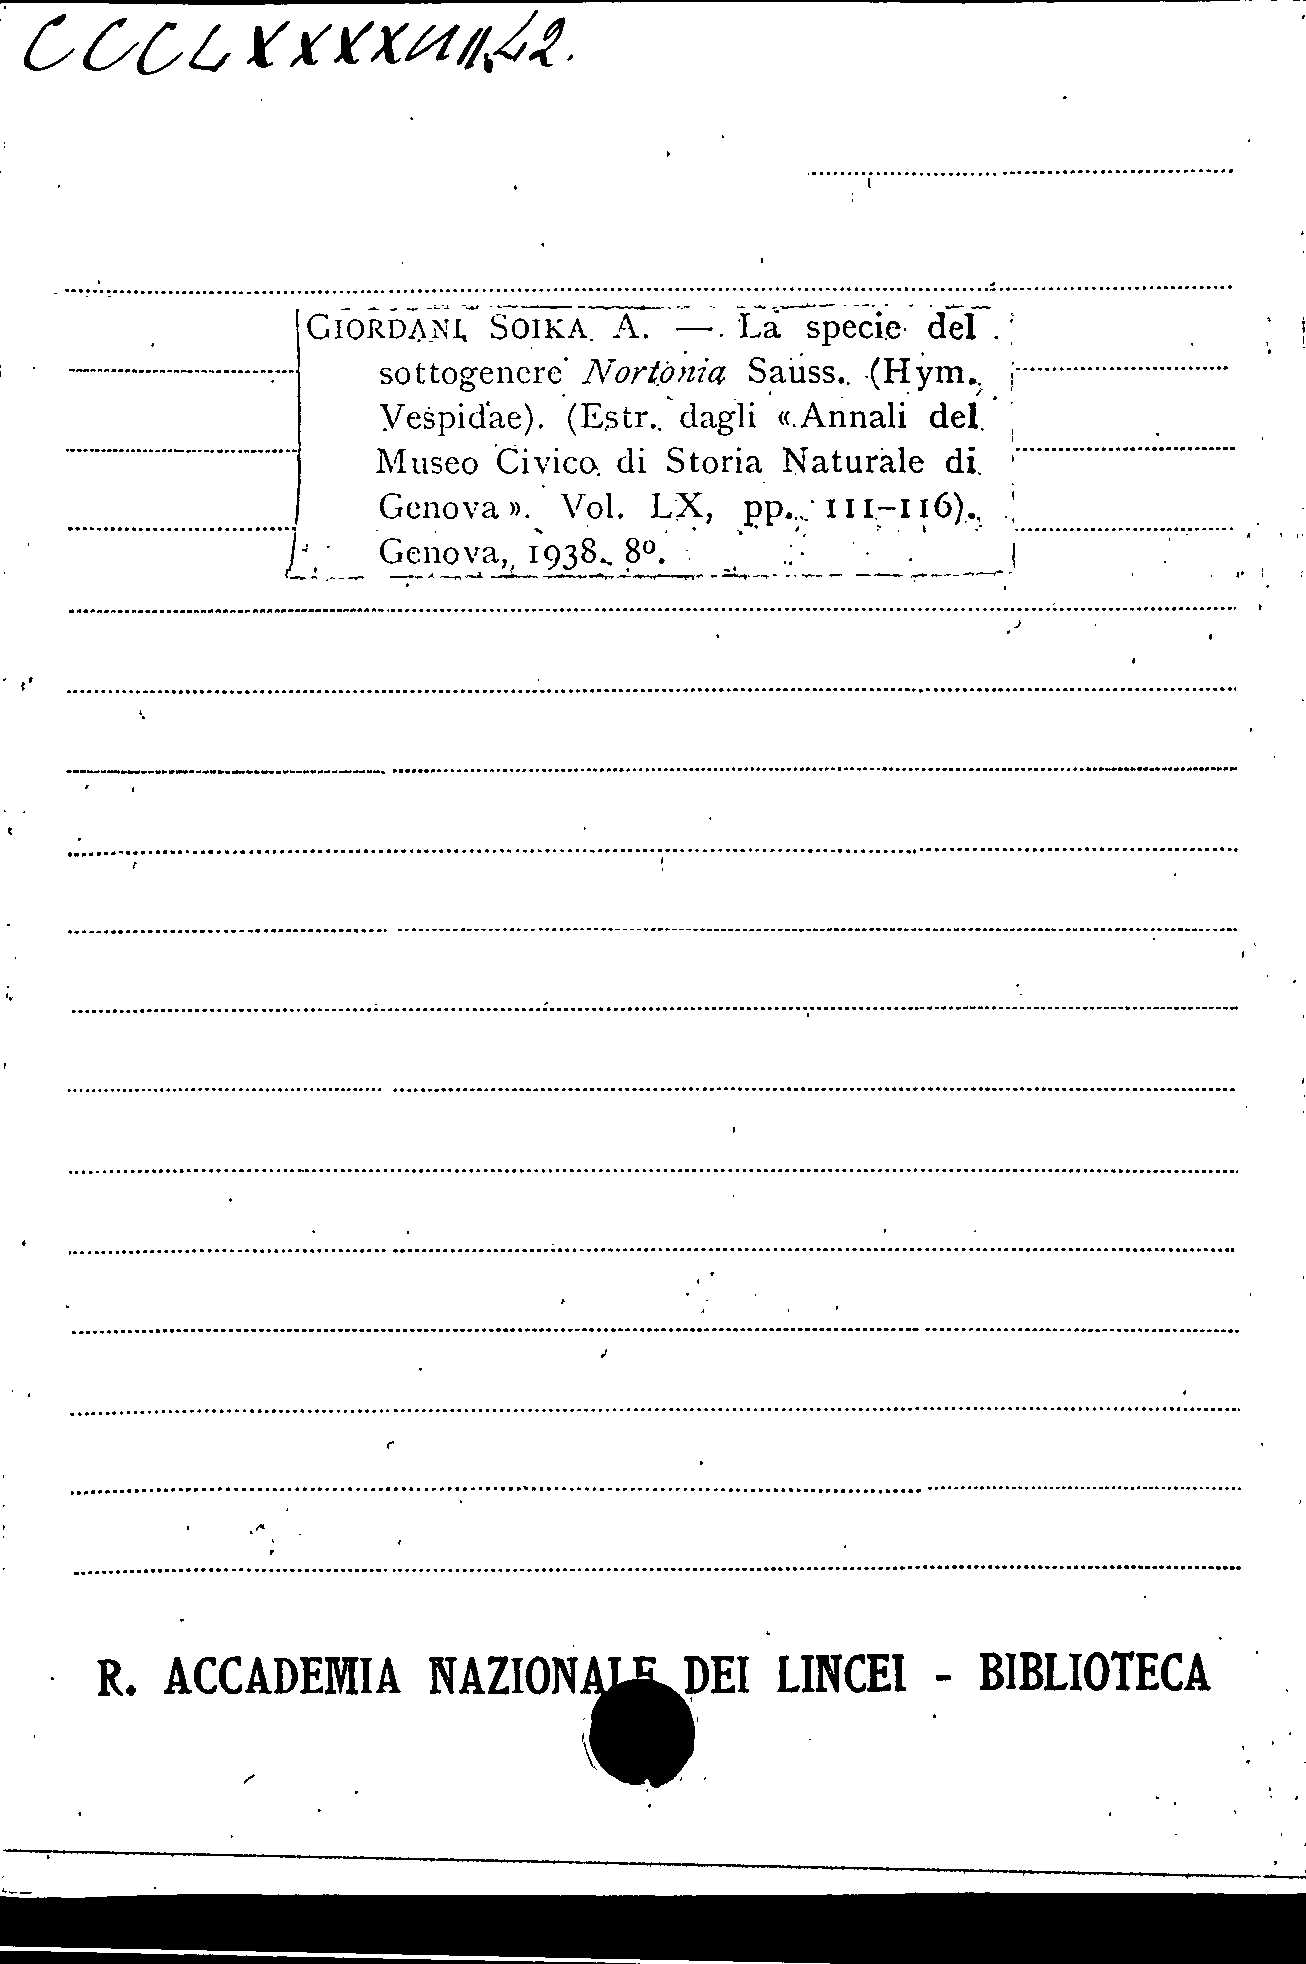 CCCLXXXXVIII.L2.
GIORDANI SOIKA A. — La specie del
sottogenere Nortonia Sauss. (Hym.
Vespidae). (Estr. dagli «Annali del
Museo Civico di Storia Naturale di
Genova». Vol. LX, pp. 111-116).
Genova, 1938. 8º.
R. ACCADEMIA NAZIONALE DEI LINCEI - BIBLIOTECA